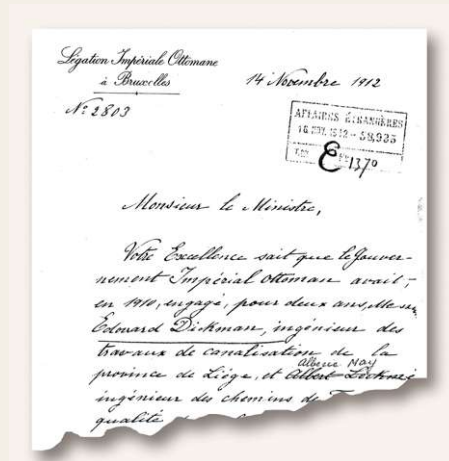 Légation Impériale Ottomane
à Bruxelles
14 Novembre 1912
Nº 2803
AFFAIRES ÉTRANGÈRES
16 NOV. 1912 - 58,935
E 1370
Monsieur le Ministre,
Votre Excellence sait que le Gouver-
nement Impérial Ottoman avait,
en 1910, engagé, pour deux ans,
Edouard Dikman, ingénieur des
travaux de canalisation de la
province de Liége, et Albert
ingénieur des chemins de
qualité